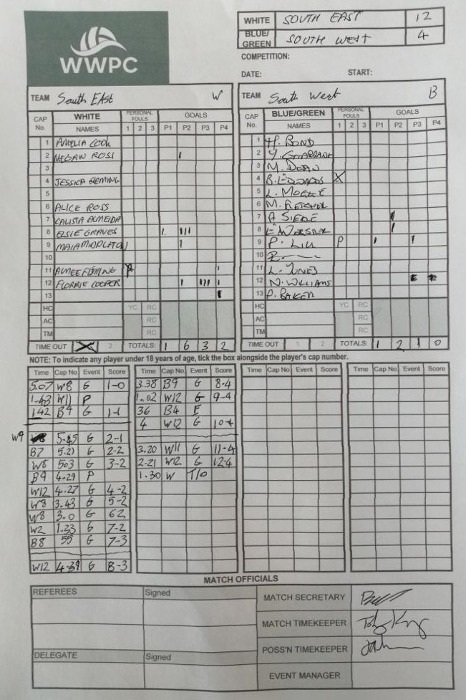 WWPC
WHITE SOUTH EAST 12
BLUE/GREEN SOUTH WEST 4
COMPETITION:
DATE: START:
TEAM South East W
CAP No. WHITE NAMES PERSONAL FOULS 1 2 3 GOALS P1 P2 P3 P4
1 AMELIA COOK
2 MEGAN ROSS
3
4 JESSICA
5
6 ALICE ROSS
7 CALISTA ALMEIDA
8 ELSIE GRAVES
9 MAIA
10
11 AIMEE
12 FLORRIE COOPER
13
HC YC RC
AC RC
TM RC
TIME OUT 1 2 TOTALS 1 6 3 2
TEAM South West B
CAP No. BLUE/GREEN NAMES PERSONAL FOULS 1 2 3 GOALS P1 P2 P3 P4
1 H. BOND
2 Y.
3 M. DORN
4 R. EDWARDS X
5 L.
6 M.
7 A
8 E
9 P. LILL P
10
11 L. JONES
12 N. WILLIAMS
13 P. BAKER
HC YC RC
AC RC
TM RC
TIME OUT 1 2 TOTALS 1 2 1 0
NOTE: To indicate any player under 18 years of age, tick the box alongside the player's cap number.
Time Cap No Event Score
5.07 W8 G 1-0
1.43 W11 P
1.42 B9 G 1-1
W9 5.45 G 2-1
B7 5.21 G 2-2
W8 5.03 G 3-2
B9 4.29 P
W12 4.27 G 4-2
W8 3.43 G 5-2
W8 3.0 G 6-2
W2 1.33 G 7-2
B8 55 G 7-3
W12 4.39 G 8-3
Time Cap No Event Score
3.38 B9 G 8-4
1.02 W12 G 9-4
36 B4 E
4 W12 G 10-4
3.20 W11 G 11-4
2.21 W12 G 12-4
1.30 W T/O
Time Cap No Event Score
Time Cap No Event Score
MATCH OFFICIALS
REFEREES Signed
MATCH SECRETARY
MATCH TIMEKEEPER
DELEGATE Signed
POSS'N TIMEKEEPER
EVENT MANAGER